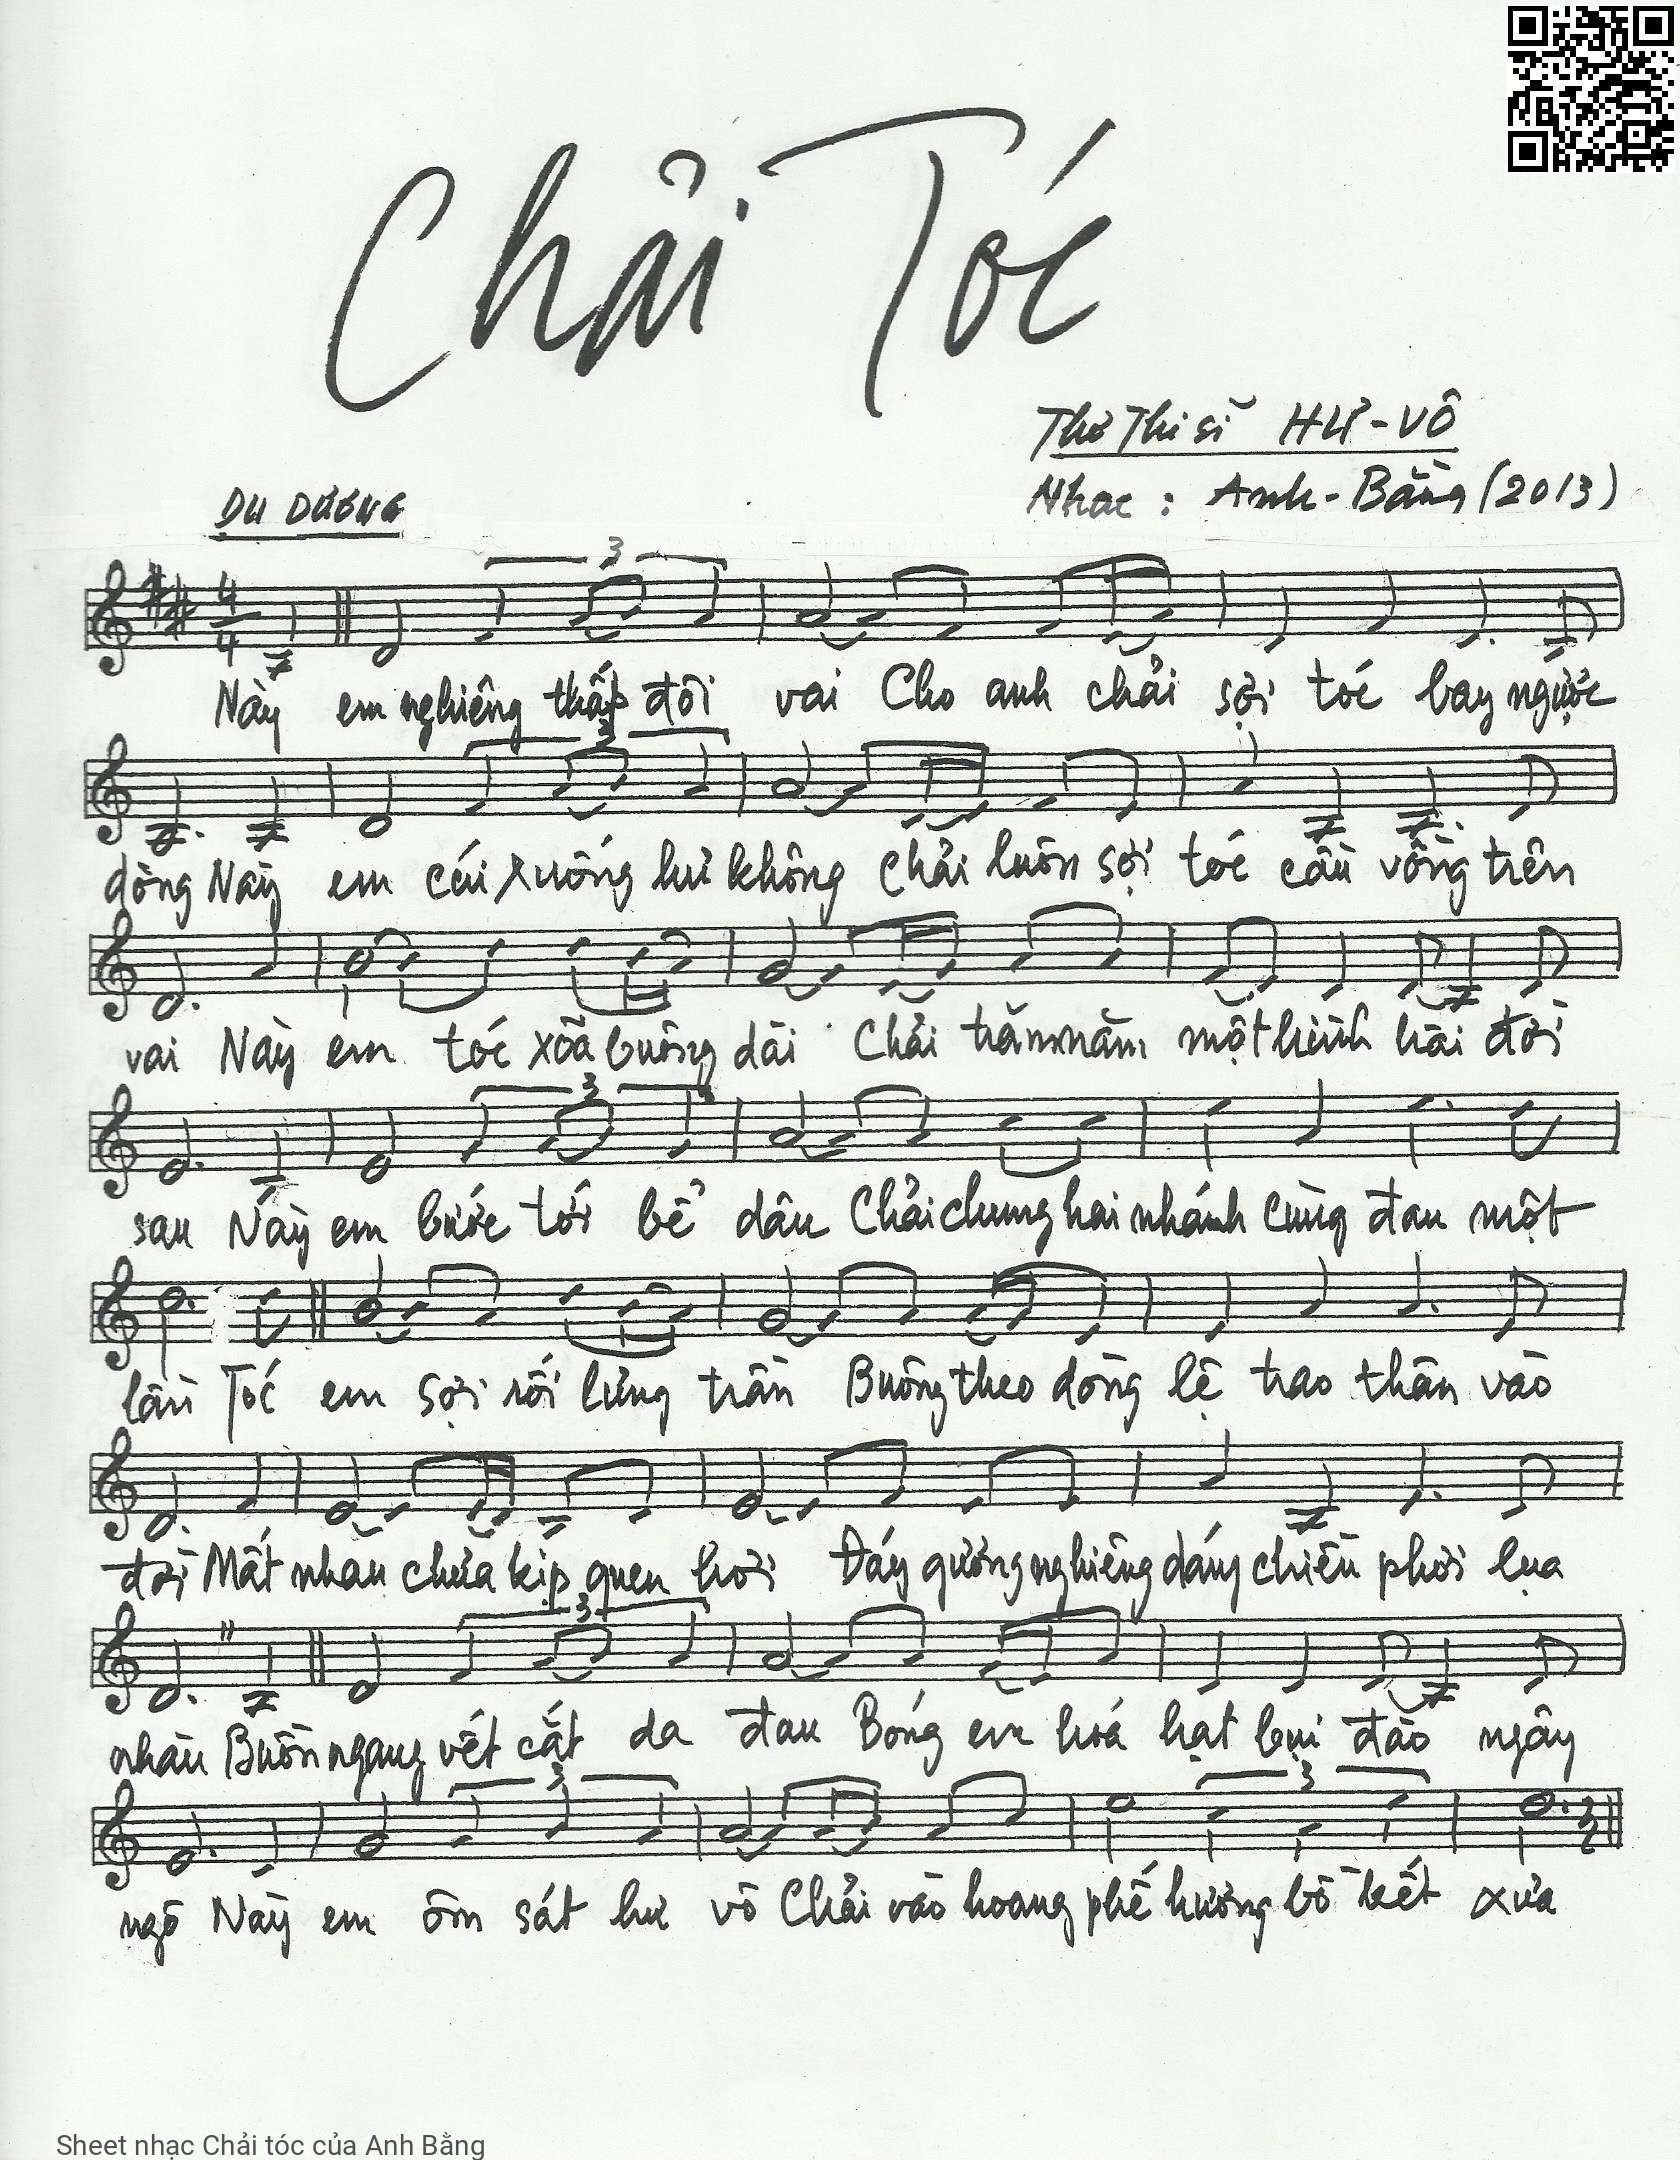 Chải Tóc
Thơ Thi sĩ HƯ-VÔ
Nhạc : Anh-Bằng (2013)
DU DƯƠNG
4
4
3
Này em nghiêng thấp đôi vai Cho anh chải sợi tóc bay ngược
3
dòng Này em cúi xuống hư không Chải luôn sợi tóc cầu vồng trên
vai Này em tóc xõa buông dài Chải trăm năm một hình hài đời
3
sau Này em bước tới bể dâu Chải chung hai nhánh cùng đau một
lần Tóc em sợi rối lưng trần Buông theo dòng lệ trao thân vào
đời Mất nhau chưa kịp quen hơi Đáy gương nghiêng dáng chiều phơi lụa
3
nhàu Buồn ngang vết cắt da đau Bóng em hoá hạt bụi đào ngây
3 3
ngô Này em ôm sát hư vô Chải vào hoang phế hương bồ kết xưa
Sheet nhạc Chải tóc của Anh Bằng